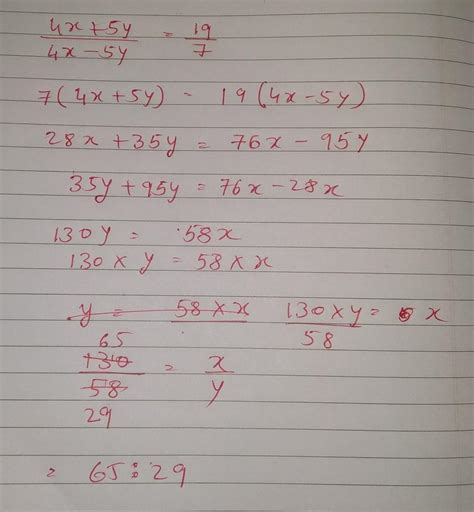 4x+5y / 4x-5y = 19/7
7(4x+5y) = 19(4x-5y)
28x + 35y = 76x - 95y
35y + 95y = 76x - 28x
130y = 58x
130 × y = 58 × x
y = 58 × x   130 × y / 58 = x
65
130/58 = x/y
29
= 65:29